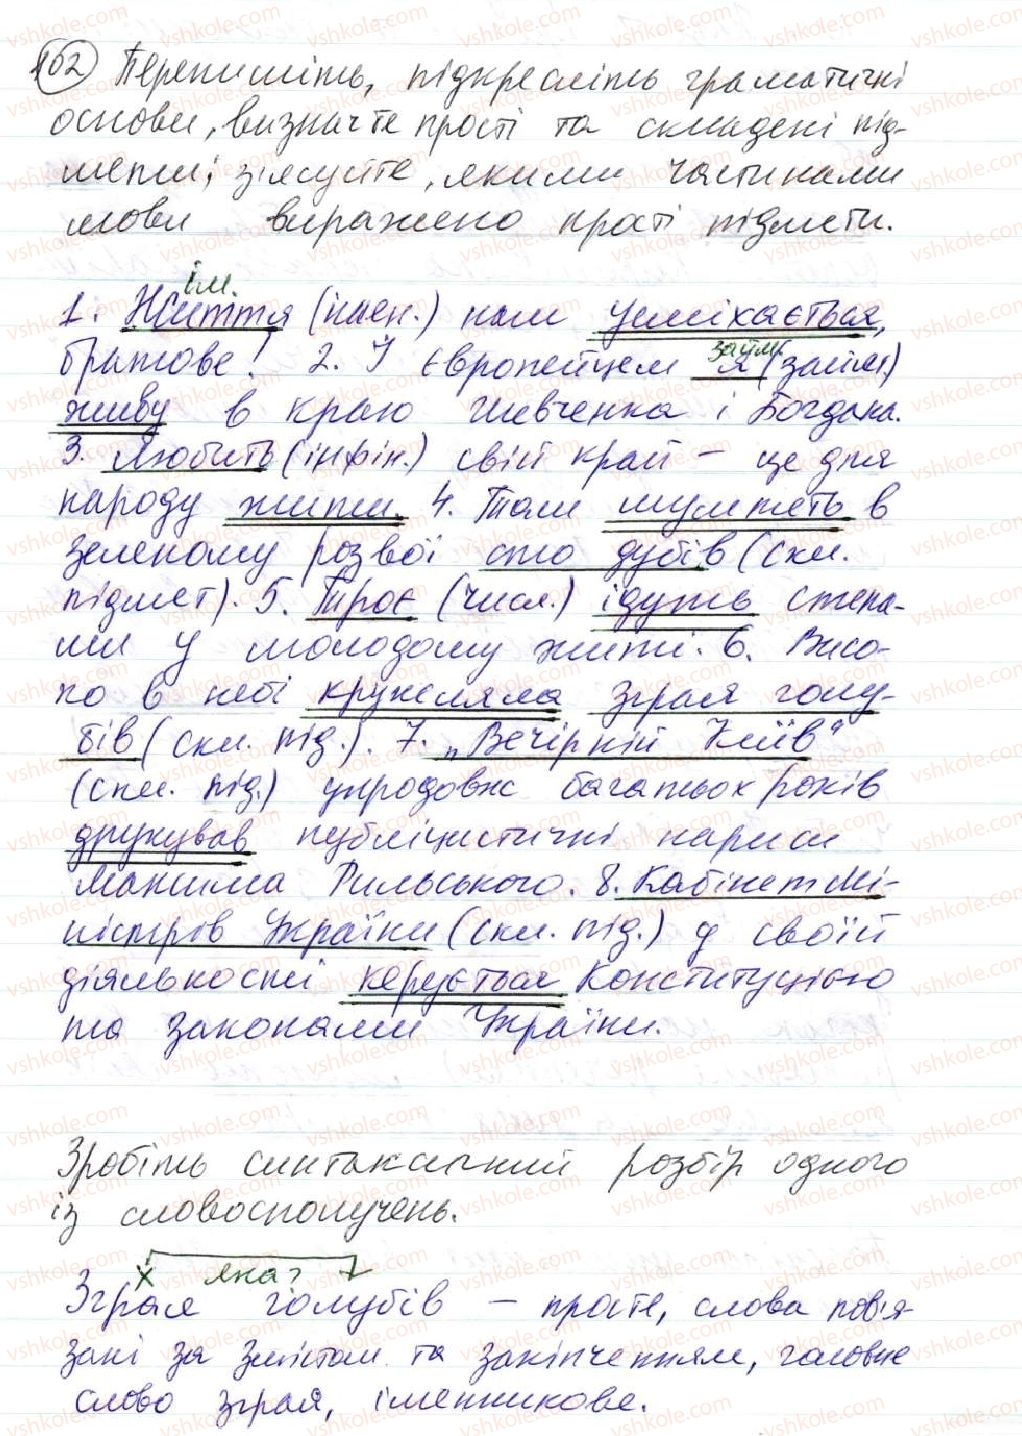 162 Перепишіть, підкресліть граматичні
основи, визначте прості та складені під-
мети; з'ясуйте, якими частинами
мови виражено прості підмети.
ім.
1. Життя (імен.) нам усміхається,
братове! 2. І європейцем я (займ.)
займ.
живу в краю Шевченка і Богдана.
3. Любить (інфін.) свій край – це для
народу жити. 4. Там шумлять в
зеленому розвої сто дубів (скл.
підмет). 5. Троє (числ.) ідуть степа-
ми у молодому житі. 6. Висо-
ко в небі кружляла зграя голу-
бів (скл. під.). 7. „Вечірній Київ"
(скл. під.) упродовж багатьох років
друкував публіцистичні нариси
Максима Рильського. 8. Кабінет Мі-
ністрів України (скл. під.) у своїй
діяльності керується Конституцією
та законами України.
Зробіть синтаксичний розбір одного
із словосполучень.
х яка?
Зграя голубів – просте, слова пов'я-
зані за змістом та закінченням, головне
слово зграя, іменникове.